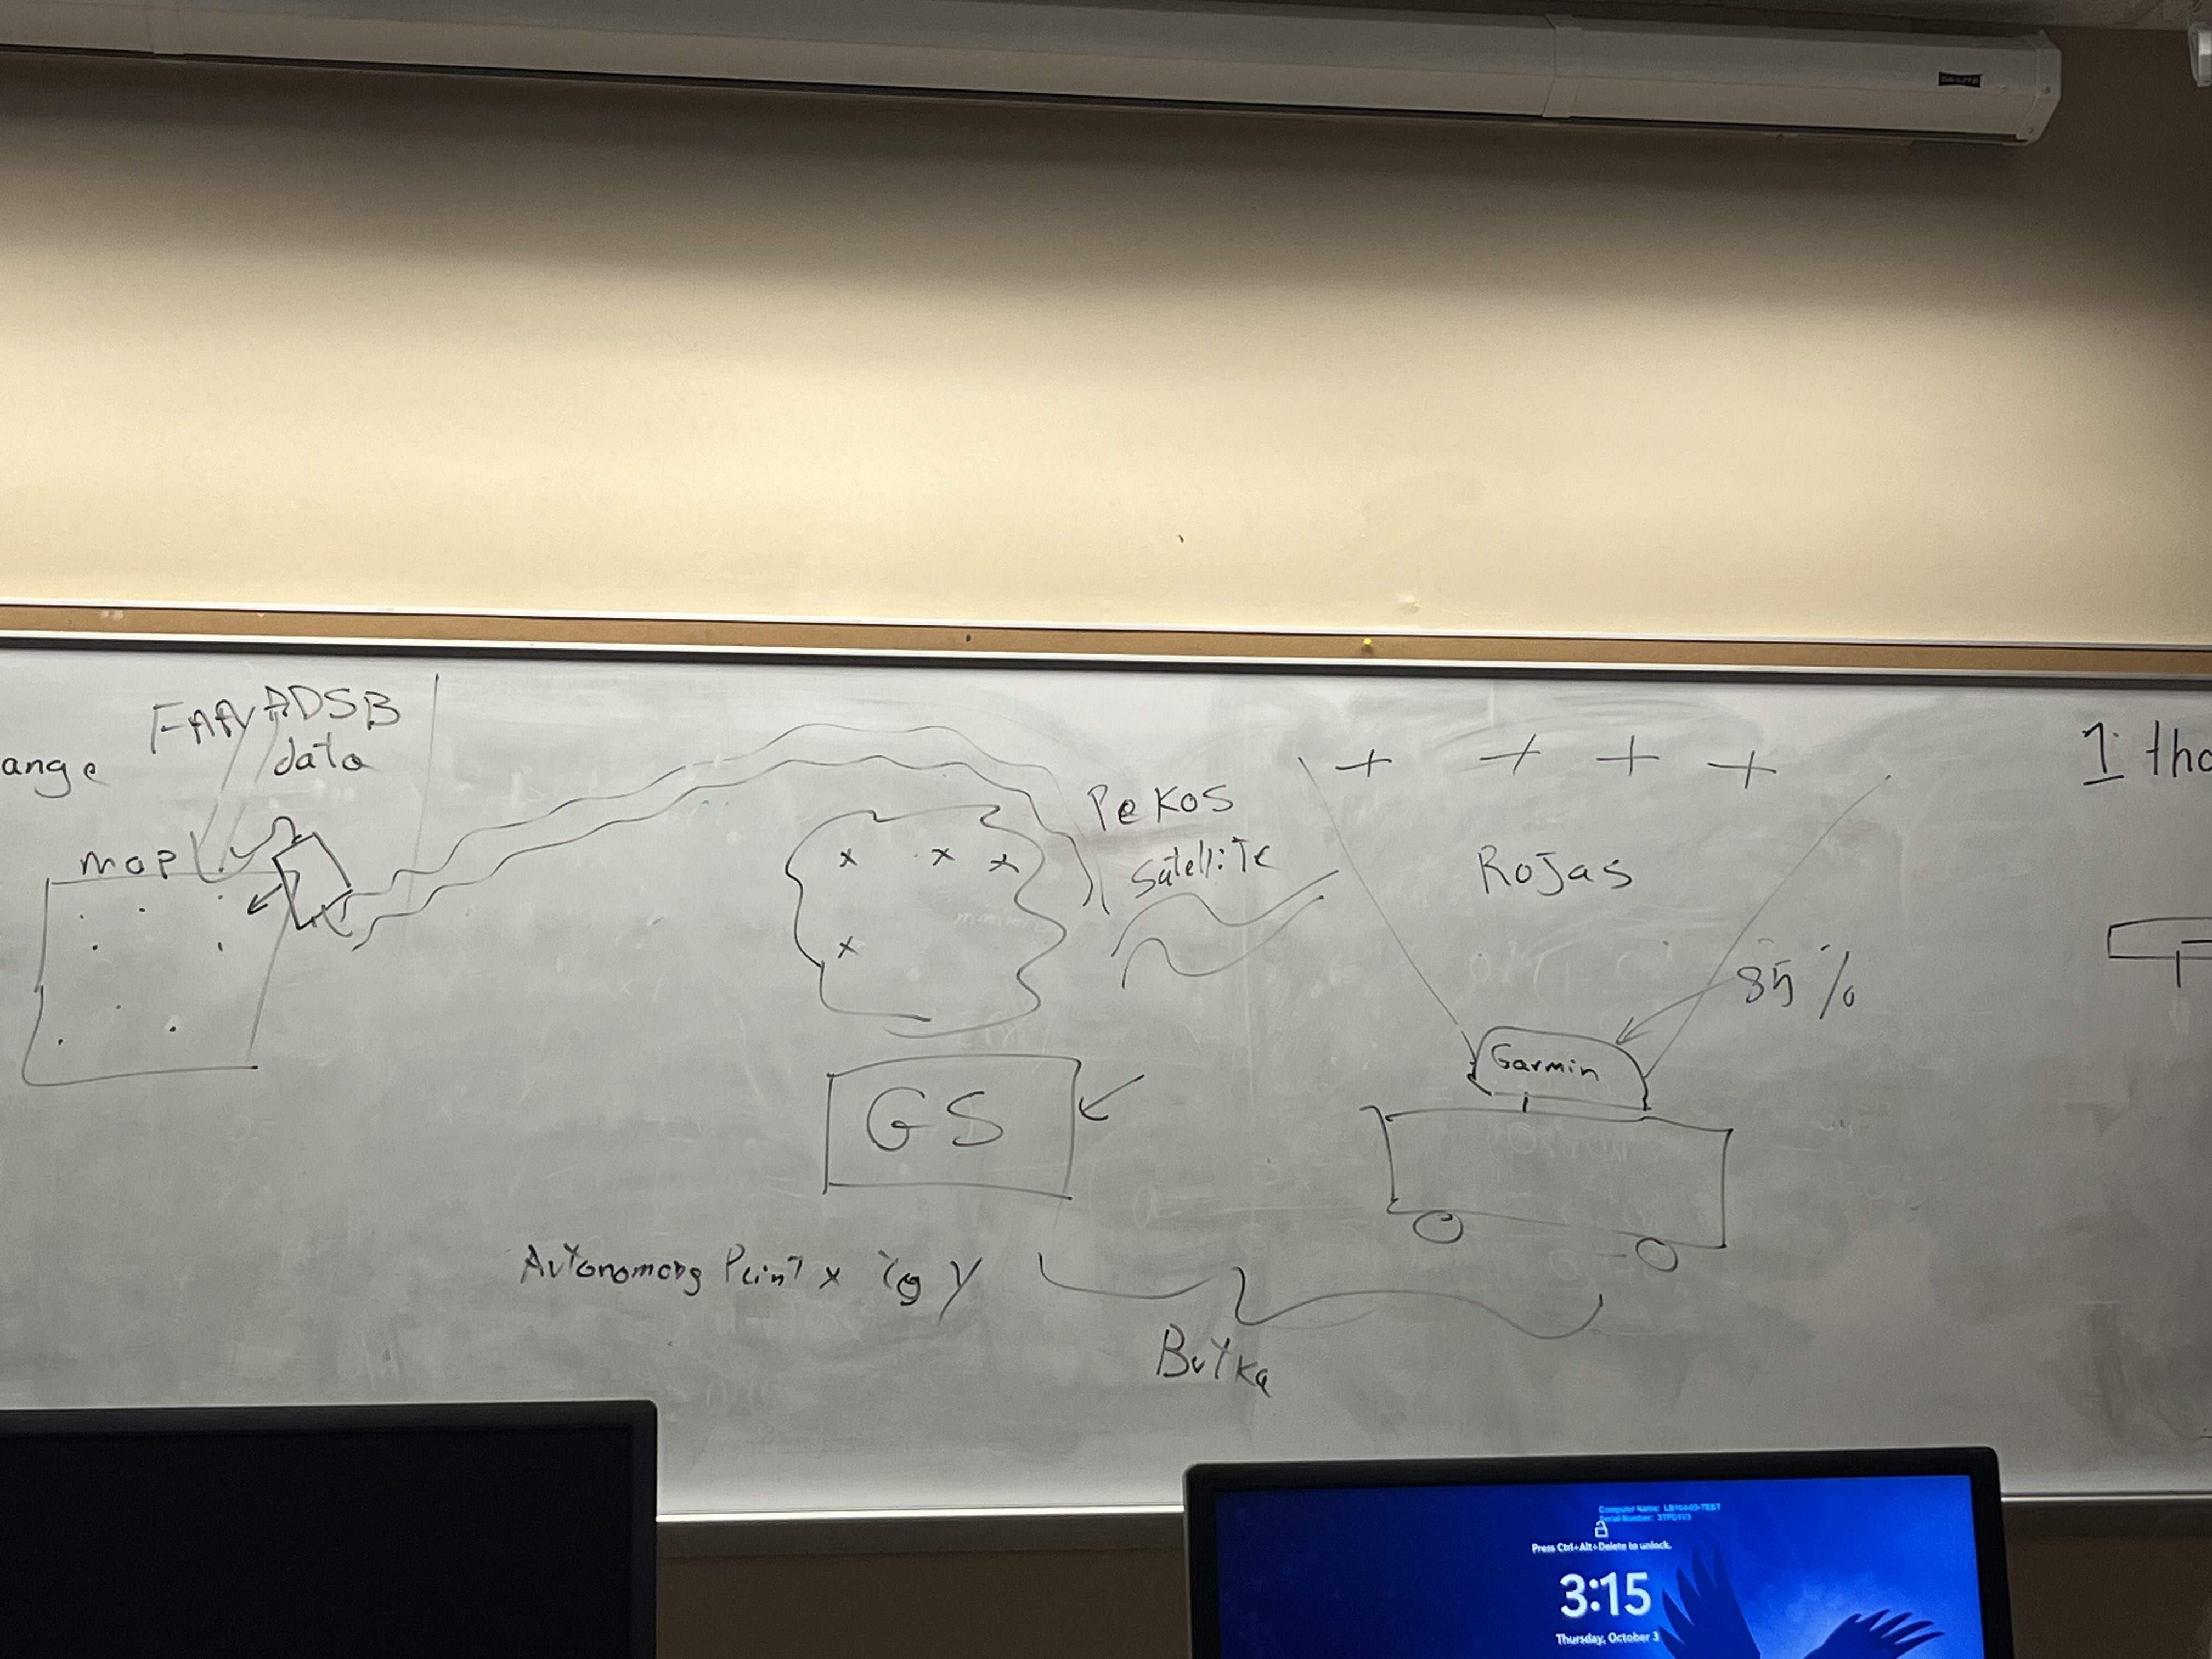 DA-LITE
ange
FAA/ADSB
data
map
Pekos
Satellite
Rojas
1 tho
85 %
Garmin
GS
Autonomous Point x to y
Butka
Computer Name: LB164-03-TEST
Press Ctrl+Alt+Delete to unlock.
3:15
Thursday, October 3